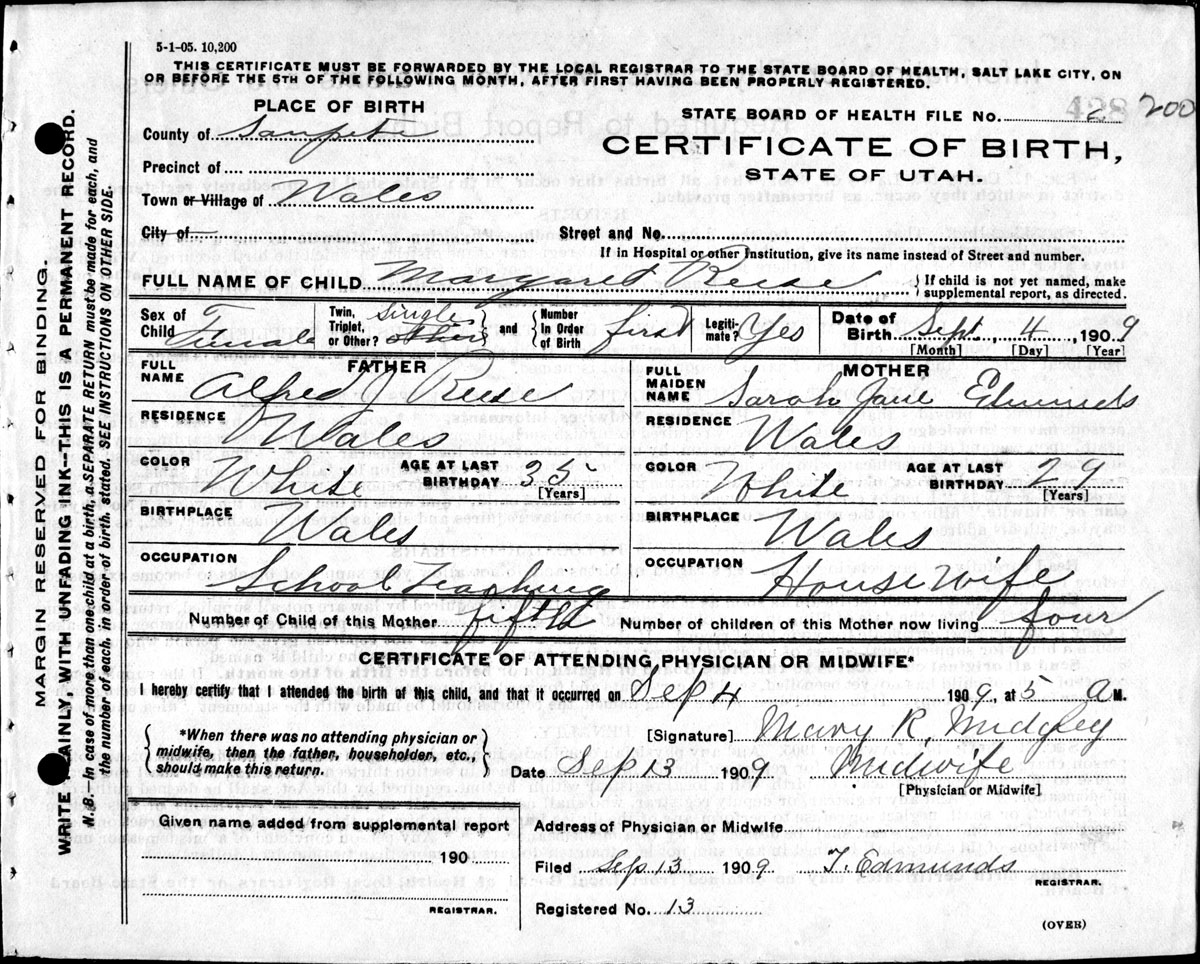 5-1-05. 10,200
THIS CERTIFICATE MUST BE FORWARDED BY THE LOCAL REGISTRAR TO THE STATE BOARD OF HEALTH, SALT LAKE CITY, ON
OR BEFORE THE 5TH OF THE FOLLOWING MONTH, AFTER FIRST HAVING BEEN PROPERLY REGISTERED.
MARGIN RESERVED FOR BINDING.
WRITE PLAINLY, WITH UNFADING INK--THIS IS A PERMANENT RECORD.
N. B.--In case of more than one child at a birth, a SEPARATE RETURN must be made for each, and
the number of each, in order of birth, stated. SEE INSTRUCTIONS ON OTHER SIDE.
PLACE OF BIRTH
County of Sanpete
Precinct of
Town or Village of Wales
City of
STATE BOARD OF HEALTH FILE No. 2 200
428
CERTIFICATE OF BIRTH,
STATE OF UTAH.
Street and No.
If in Hospital or other Institution, give its name instead of Street and number.
FULL NAME OF CHILD Margaret Reese { If child is not yet named, make supplemental report, as directed.
Sex of Child Female Twin, Triplet, or Other? Single and Number in Order of Birth first Legitimate? Yes Date of Birth Sept. 4 1909
[Month] [Day] [Year]
FATHER
FULL NAME Alfred J Reese
RESIDENCE Wales
COLOR White AGE AT LAST BIRTHDAY 35
[Years]
BIRTHPLACE Wales
OCCUPATION School Teaching
MOTHER
FULL MAIDEN NAME Sarah Jane Edmunds
RESIDENCE Wales
COLOR White AGE AT LAST BIRTHDAY 29
[Years]
BIRTHPLACE Wales
OCCUPATION House Wife
Number of Child of this Mother fifth Number of children of this Mother now living four
CERTIFICATE OF ATTENDING PHYSICIAN OR MIDWIFE*
I hereby certify that I attended the birth of this child, and that it occurred on Sep 4 1909, at 5 A M.
{ *When there was no attending physician or midwife, then the father, householder, etc., should make this return. }
[Signature] Mary R. Midgley
Date Sep 13 1909 Midwife
[Physician or Midwife]
Given name added from supplemental report
190
REGISTRAR.
Address of Physician or Midwife
Filed Sep. 13 1909 T. Edmunds
REGISTRAR.
Registered No. 13
(OVER)